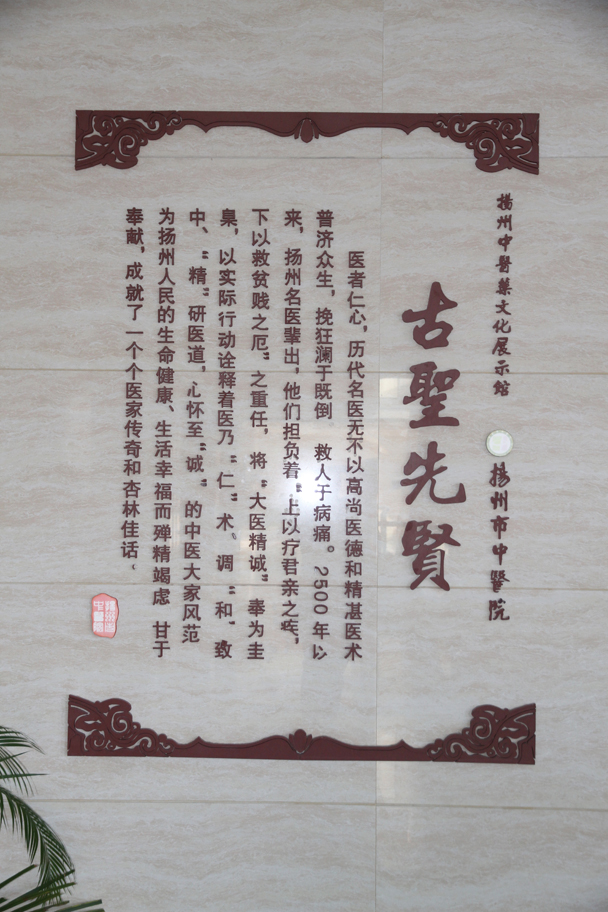 揚州中醫藥文化展示館
揚州市中醫院
古聖先賢
医者仁心，历代名医无不以高尚医德和精湛医术
普济众生，挽狂澜于既倒 救人于病痛。2500年以
来，扬州名医辈出，他们担负着“上以疗君亲之疾，
下以救贫贱之厄”之重任，将“大医精诚”奉为圭
臬，以实际行动诠释着医乃“仁”术。调“和”致
中、“精”研医道，心怀至“诚”的中医大家风范
为扬州人民的生命健康、生活幸福而殚精竭虑 甘于
奉献，成就了一个个医家传奇和杏林佳话。